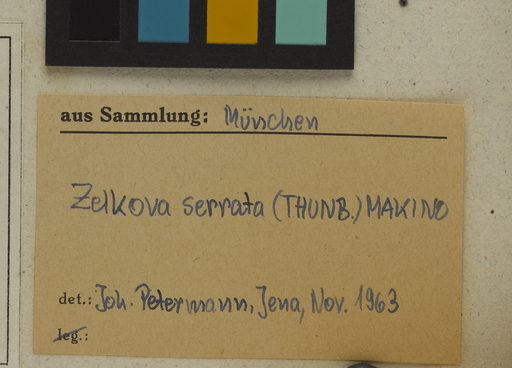 aus Sammlung: München
Zelkova serrata (THUNB.) MAKINO
det.: Joh. Petermann, Jena, Nov. 1963
leg.: